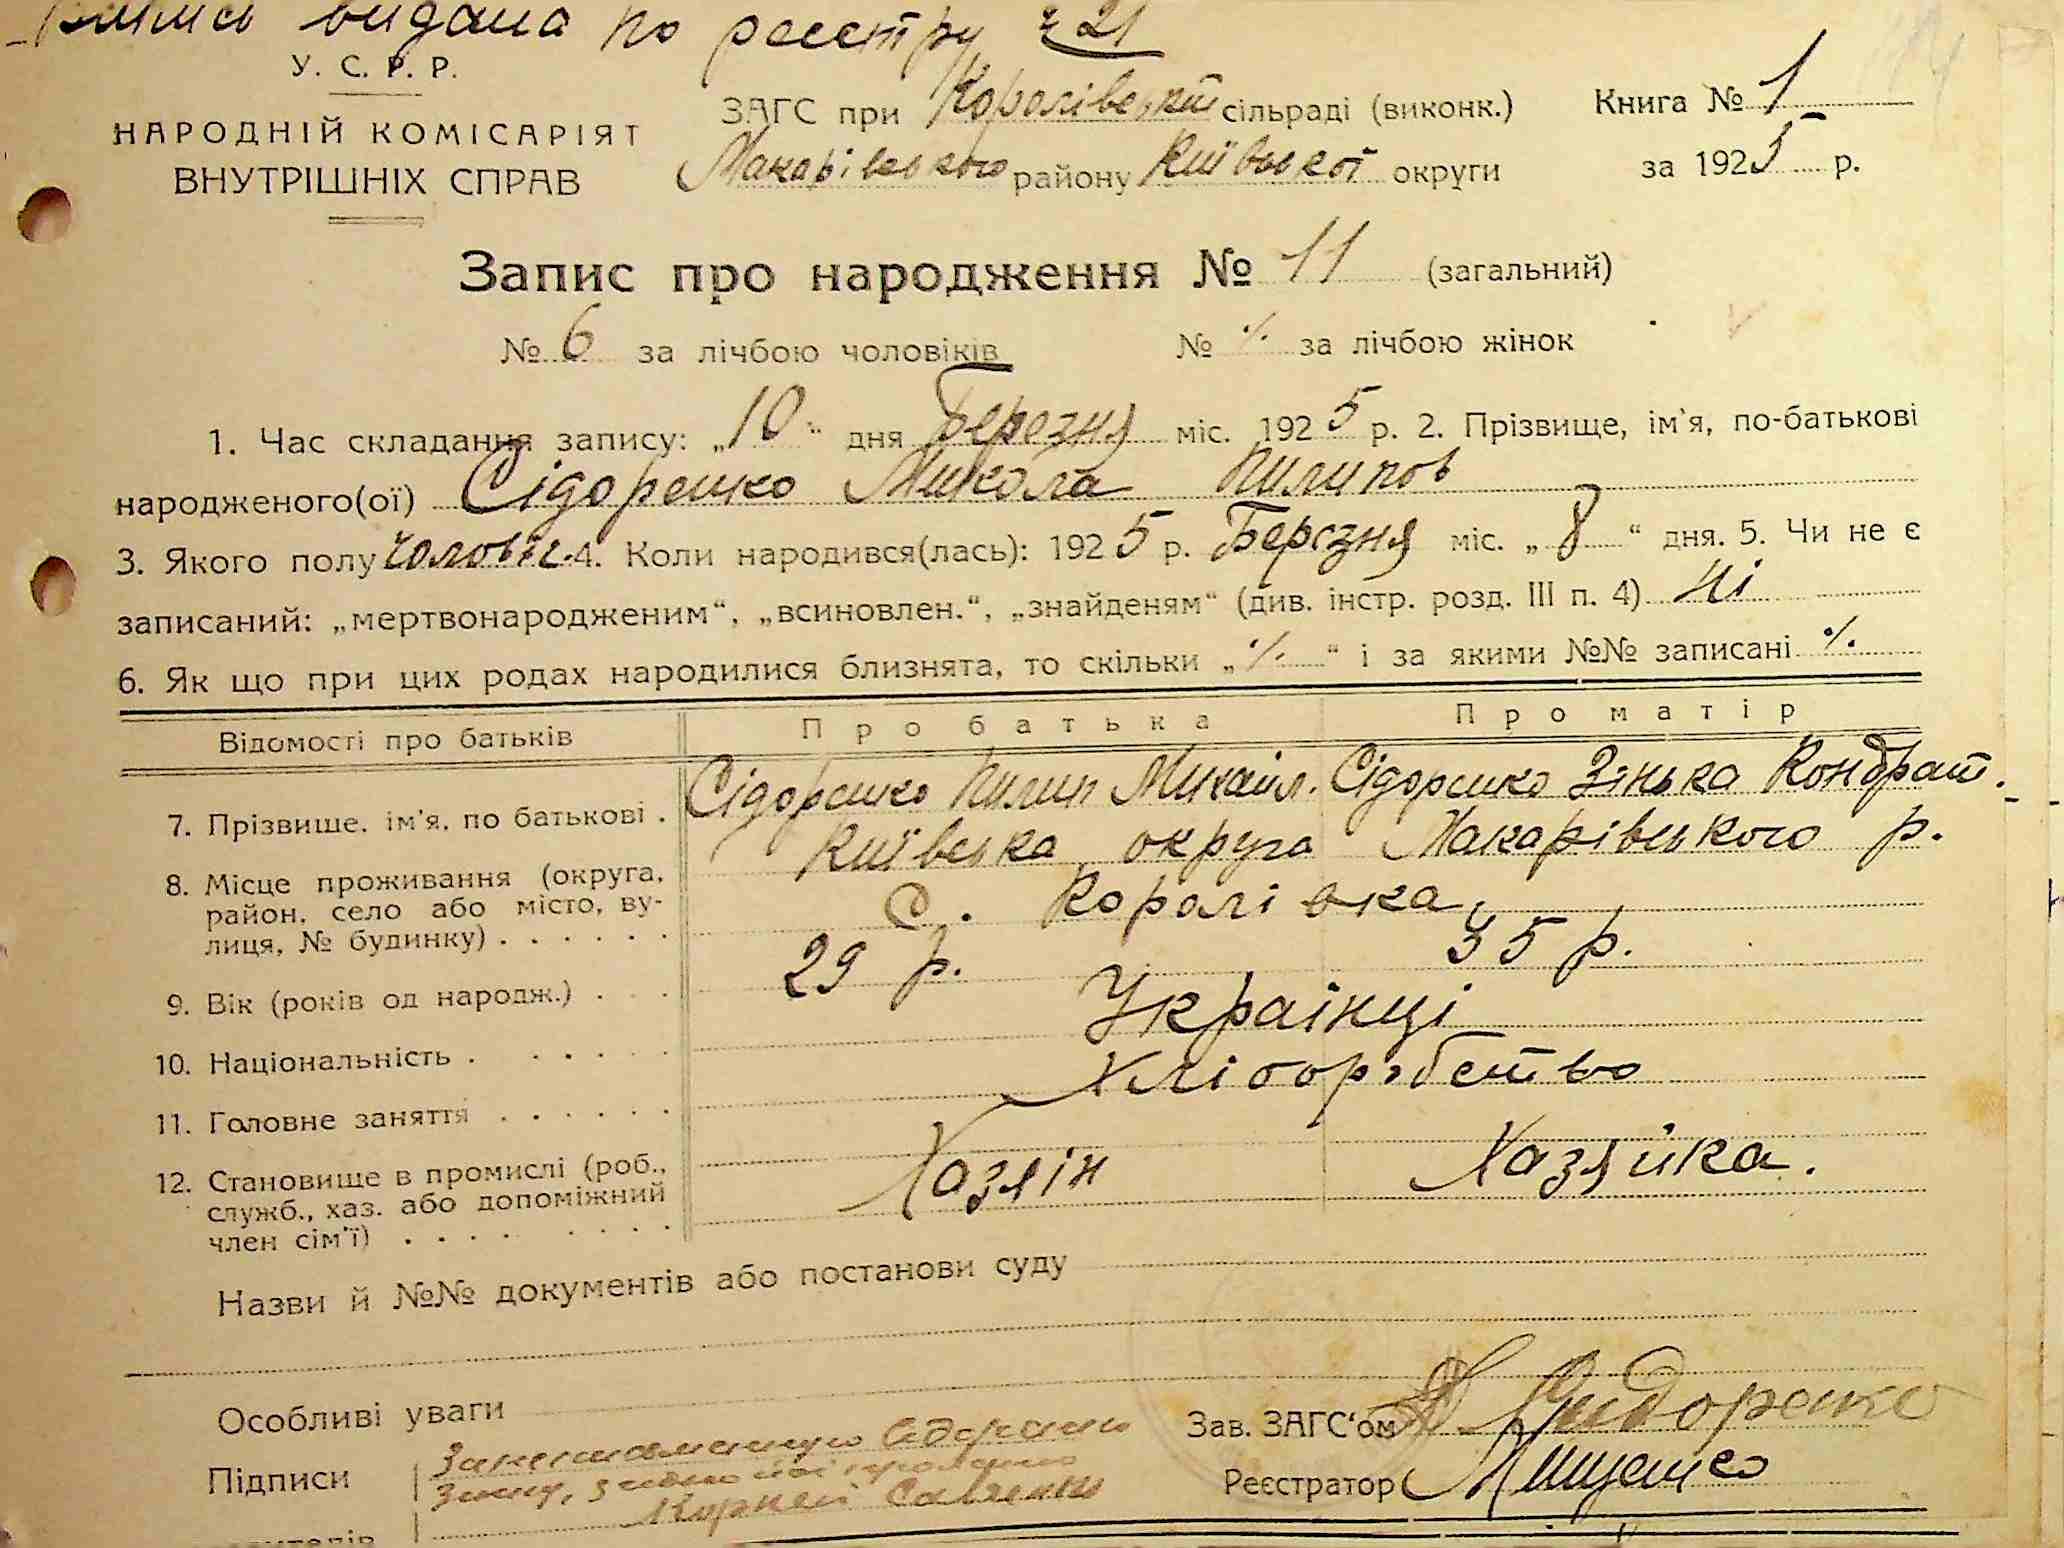 видана по реєстру № 21
У. С. Р. Р.
НАРОДНІЙ КОМІСАРІЯТ
ВНУТРІШНІХ СПРАВ
ЗАГС при Королівській сільраді (виконк.)
Макарівського району Київської округи
Книга № 1
за 1925 р.
Запис про народження № 11 (загальний)
№ 6 за лічбою чоловіків № ·/· за лічбою жінок
1. Час складання запису: „10“ дня Березня міс. 1925 р. 2. Прізвище, ім'я, по-батькові
народженого(ої) Сідоренко Микола Пилипов
3. Якого полу чоловіч. 4. Коли народився(лась): 1925 р. Березня міс. „8“ дня. 5. Чи не є
записаний: „мертвонародженим“, „всиновлен.“, „знайденям“ (див. інстр. розд. III п. 4) ні
6. Як що при цих родах народилися близнята, то скільки „·/·“ і за якими №№ записані ·/·
Відомості про батьків Про батька Про матір
7. Прізвище, ім'я, по батькові . Сідоренко Пилип Михайл. Сідоренко Зінька Кондрат.
8. Місце проживання (округа, район, село або місто, вулиця, № будинку) . . . . . . Київська округа Макарівського р.
с. Королівка,
9. Вік (років од народж.) . . . 29 р. 35 р.
10. Національність . . . . . . Українці
11. Головне заняття . . . . . . Хліборобство
12. Становище в промислі (роб., служб., хаз. або допоміжний член сім'ї) . . . . . . . . Хазяін Хазяйка.
Назви й №№ документів або постанови суду
Особливі уваги
Зав. ЗАГС'ом Сидоренко
Підписи
Корней
Реєстратор